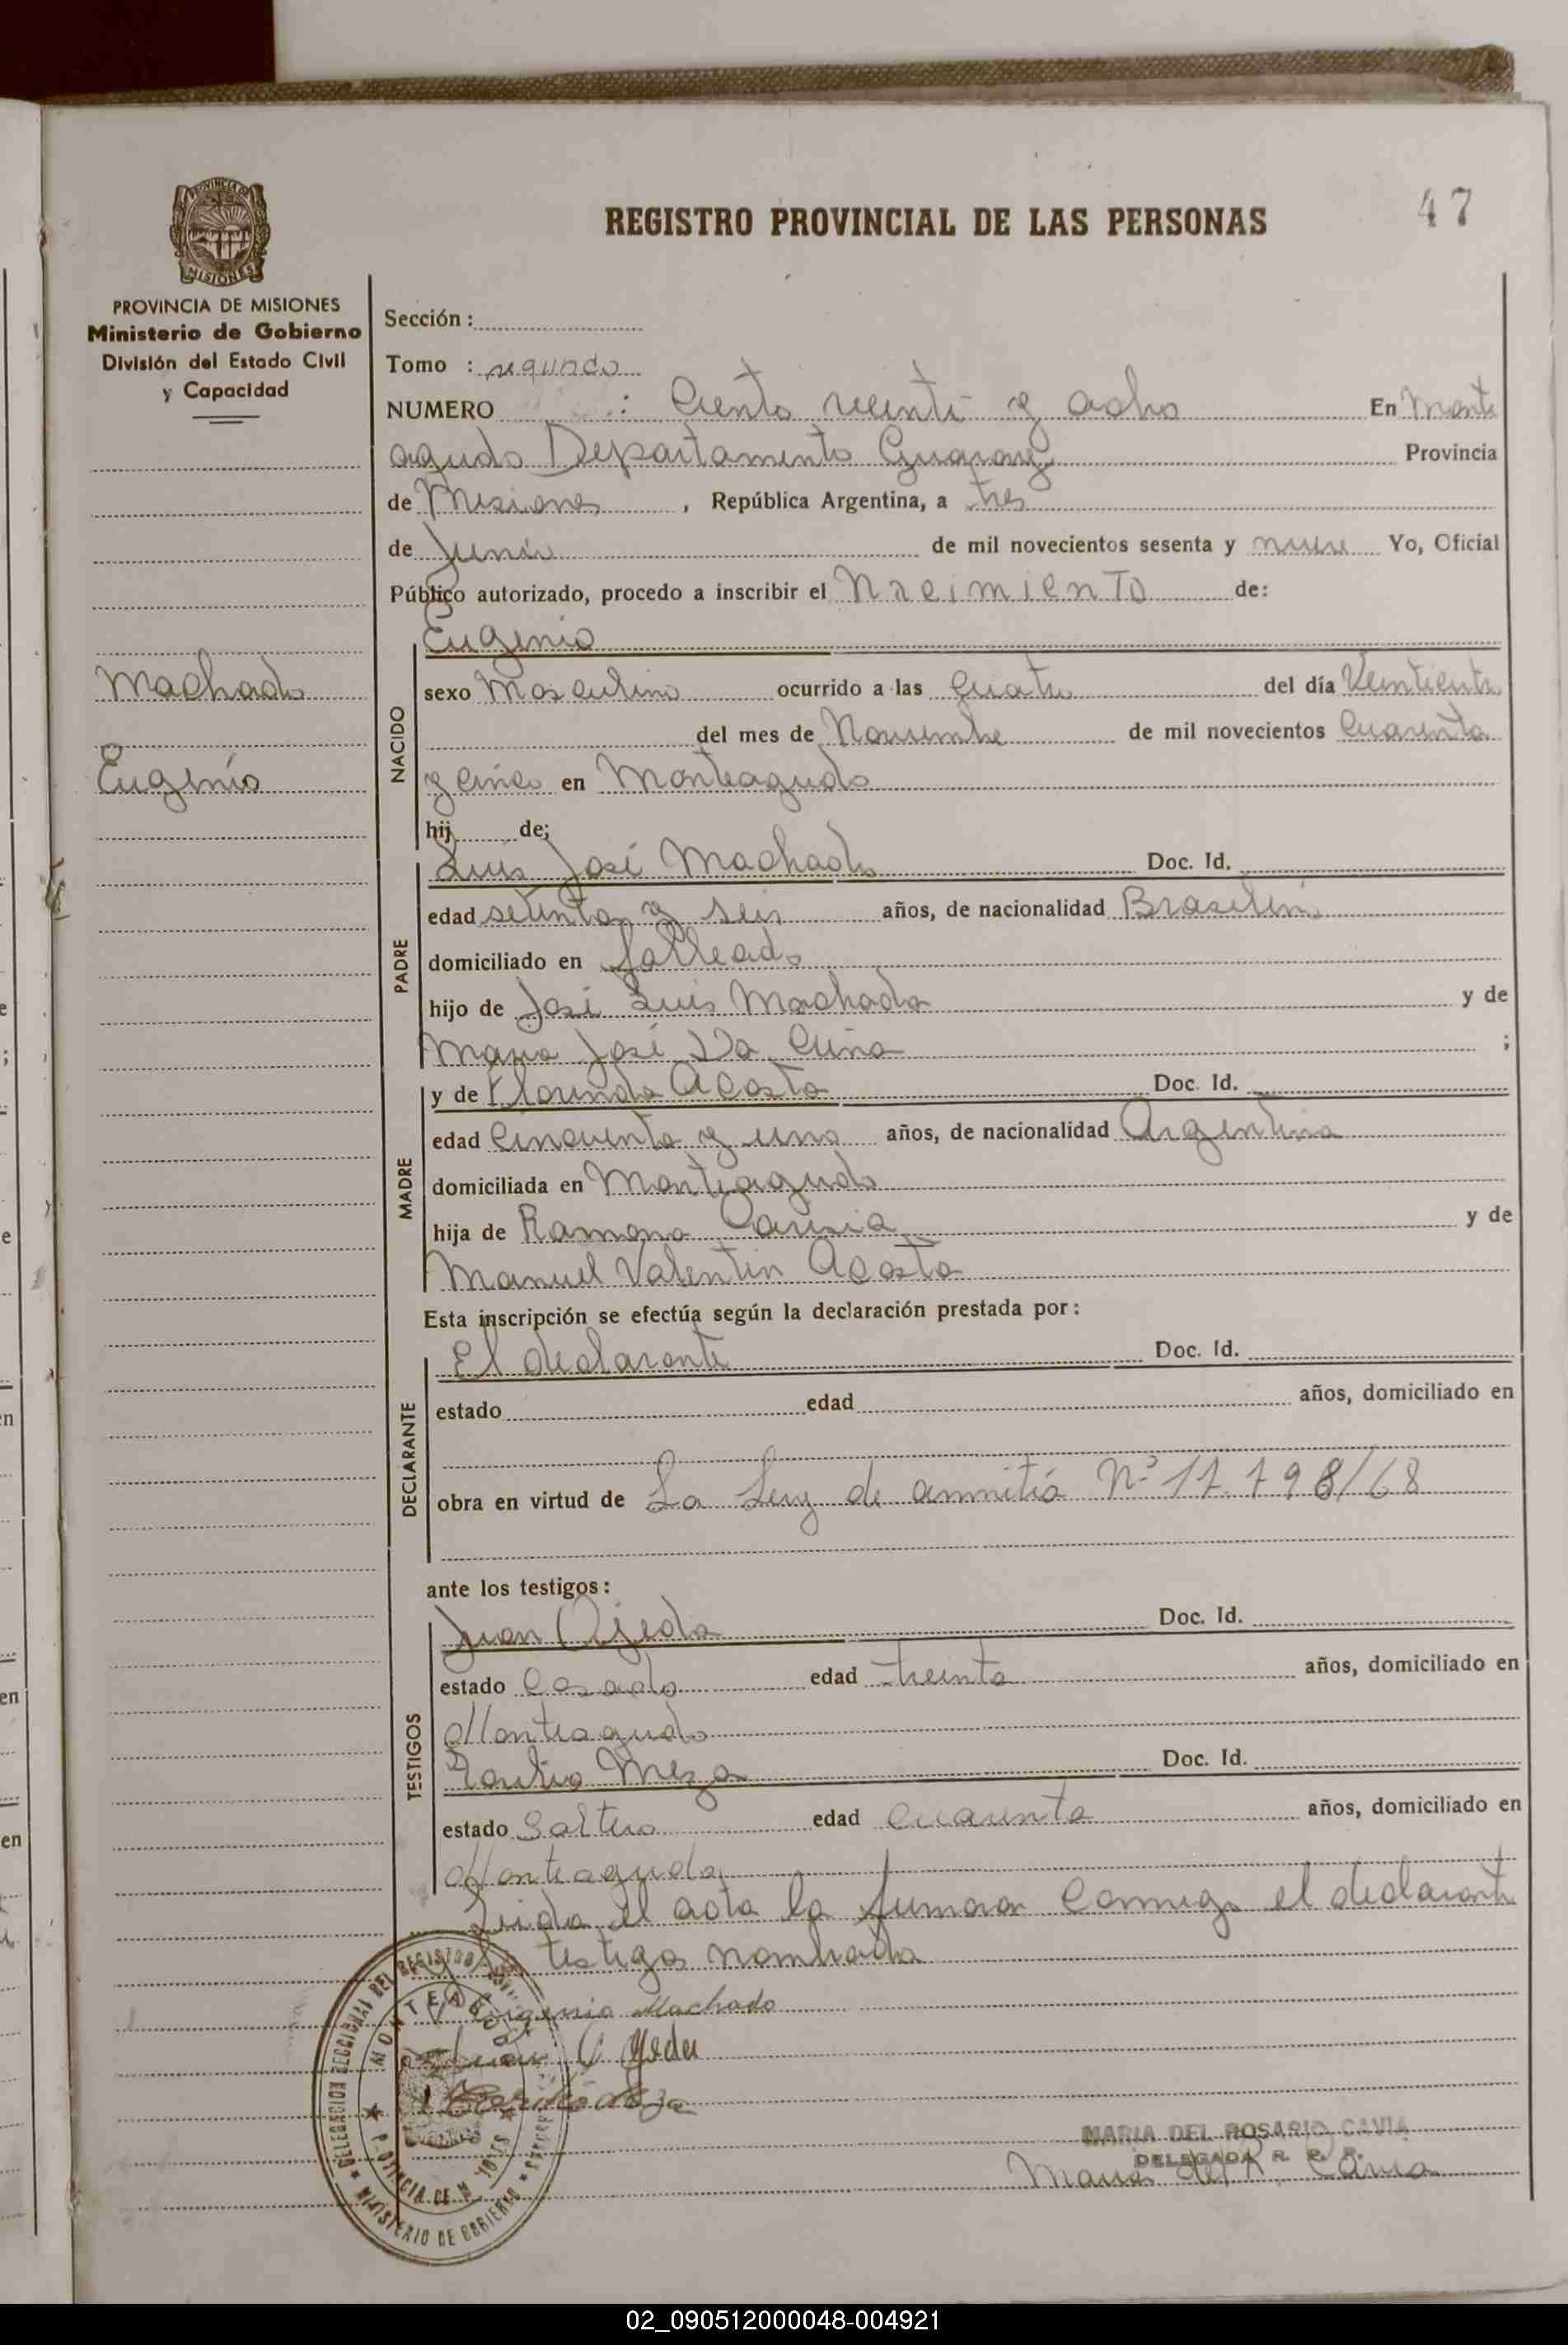 REGISTRO PROVINCIAL DE LAS PERSONAS
47
PROVINCIA DE
MISIONES
PROVINCIA DE MISIONES
Ministerio de Gobierno
División del Estado Civil
y Capacidad
Machado
Eugenio
Sección :
Tomo : segundo
NUMERO : Ciento veinte y ocho En Monte
agudo Departamento Guarany Provincia
de Misiones , República Argentina, a tres
de Junio de mil novecientos sesenta y nueve Yo, Oficial
Público autorizado, procedo a inscribir el Nacimiento de:
NACIDO
Eugenio
sexo Masculino ocurrido a las cuatro del día
del mes de Noviembre de mil novecientos Cuarenta
y cinco en Monteagudo
hij de;
PADRE
Luis José Machado Doc. Id.
edad setenta y seis años, de nacionalidad Brasilero
domiciliado en falleado
hijo de José Luis Machado y de
Maria José Da Cuña ;
MADRE
y de Florinda Acosta Doc. Id.
edad Cincuenta y uno años, de nacionalidad Argentina
domiciliada en Monteagudo
hija de Ramona y de
Manuel Valentin Acosta
Esta inscripción se efectúa según la declaración prestada por :
DECLARANTE
El declarante Doc. Id.
estado edad años, domiciliado en
obra en virtud de La Ley de amnitía Nº 17.798/68
ante los testigos :
TESTIGOS
Juan Ojeda Doc. Id.
estado Casado edad treinta años, domiciliado en
Monteagudo
Meza Doc. Id.
estado Soltero edad Cuarenta años, domiciliado en
Monteagudo
Leida el acta la firman Conmigo el declarante
testigos nombrados
Eugenio Machado
Juan Ojeda
Meza
MONTEAGUDO
PROVINCIA DE MISIONES
MINISTERIO DE GOBIERNO
MARIA DEL ROSARIO CAVIA
DELEGADA R. P. P.
Maria del R. Cavia
02_090512000048-004921